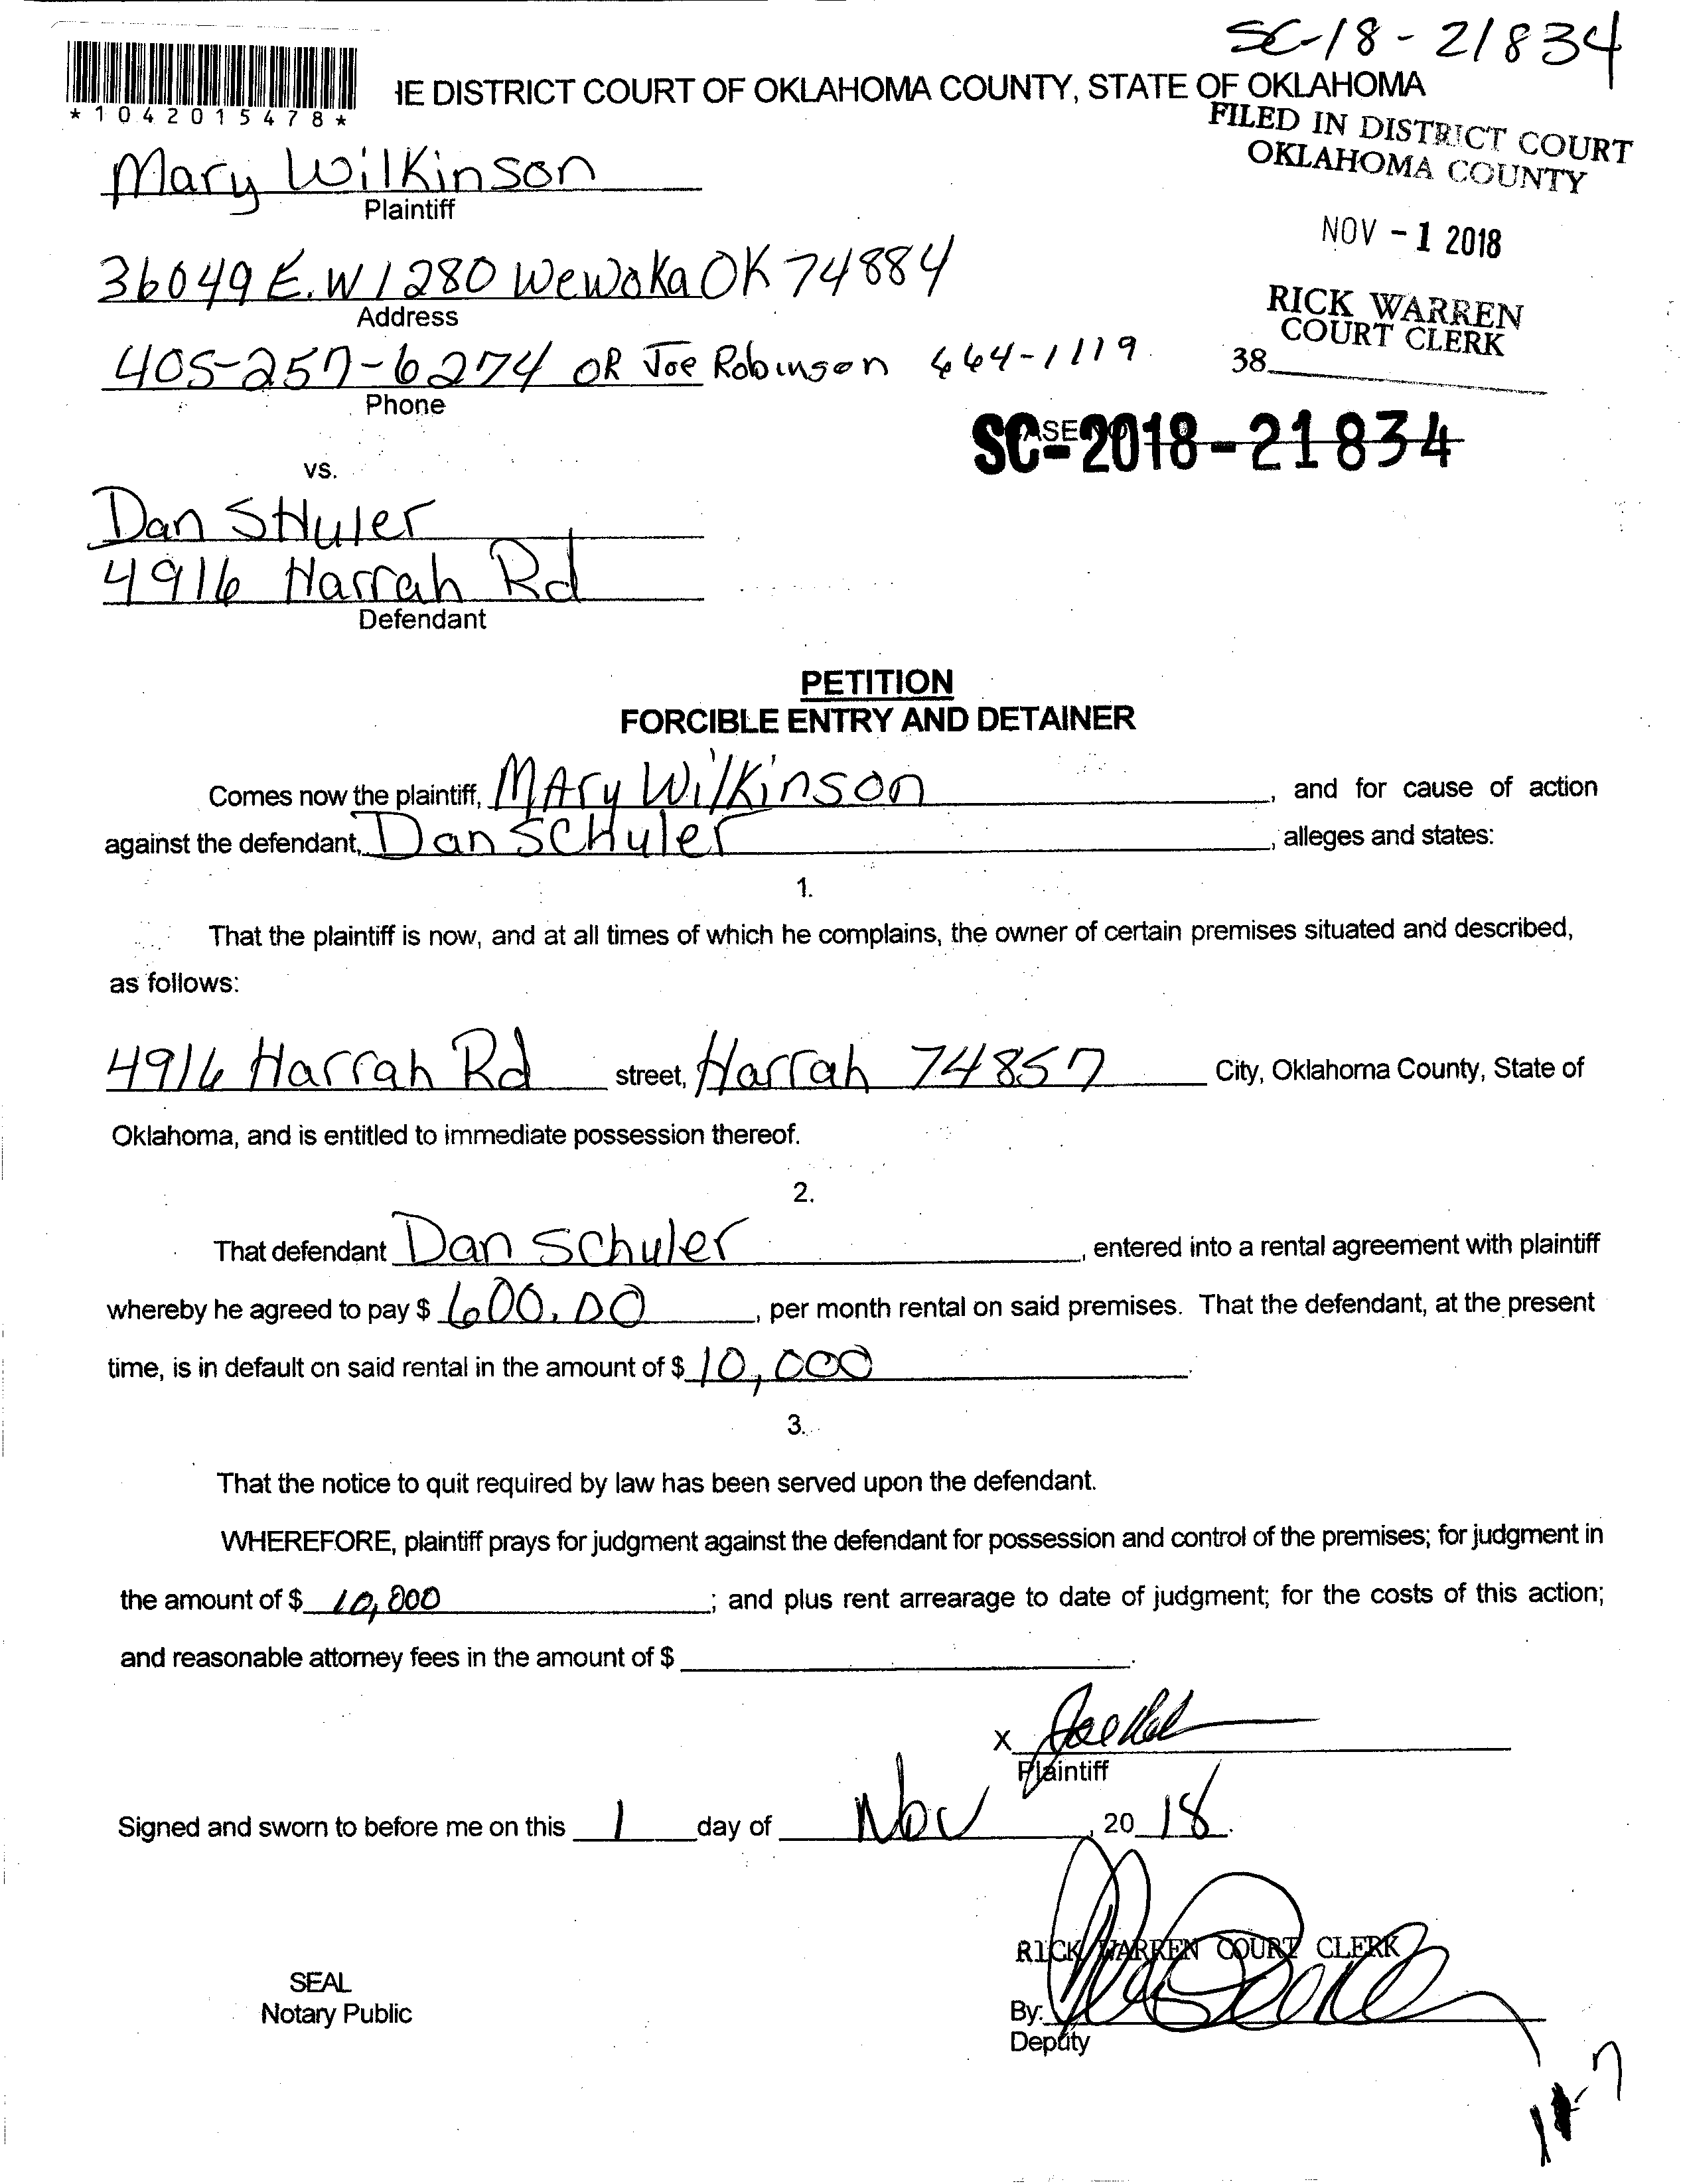 SC-18-21834
*1042015478*
IE DISTRICT COURT OF OKLAHOMA COUNTY, STATE OF OKLAHOMA
FILED IN DISTRICT COURT
OKLAHOMA COUNTY
Mary Wilkinson
Plaintiff
NOV - 1 2018
36049 E.W 1280 Wewoka OK 74884
Address
RICK WARREN
COURT CLERK
38
405-257-6274 OR Joe Robinson 664-1119
Phone
SC-2018-21834
vs.
Dan SHuler
4916 Harrah Rd
Defendant
PETITION
FORCIBLE ENTRY AND DETAINER
Comes now the plaintiff, MAry Wilkinson, and for cause of action
against the defendant, Dan SCHuler, alleges and states:
1.
That the plaintiff is now, and at all times of which he complains, the owner of certain premises situated and described,
as follows:
4916 Harrah Rd street, Harrah 74857 City, Oklahoma County, State of
Oklahoma, and is entitled to immediate possession thereof.
2.
That defendant Dan Schuler, entered into a rental agreement with plaintiff
whereby he agreed to pay $ 600.00, per month rental on said premises. That the defendant, at the present
time, is in default on said rental in the amount of $ 10,000.
3.
That the notice to quit required by law has been served upon the defendant.
WHEREFORE, plaintiff prays for judgment against the defendant for possession and control of the premises; for judgment in
the amount of $ 10,000; and plus rent arrearage to date of judgment; for the costs of this action;
and reasonable attorney fees in the amount of $
X
Plaintiff
Signed and sworn to before me on this 1 day of Nov, 20 18.
RICK WARREN COURT CLERK
SEAL
Notary Public
By:
Deputy